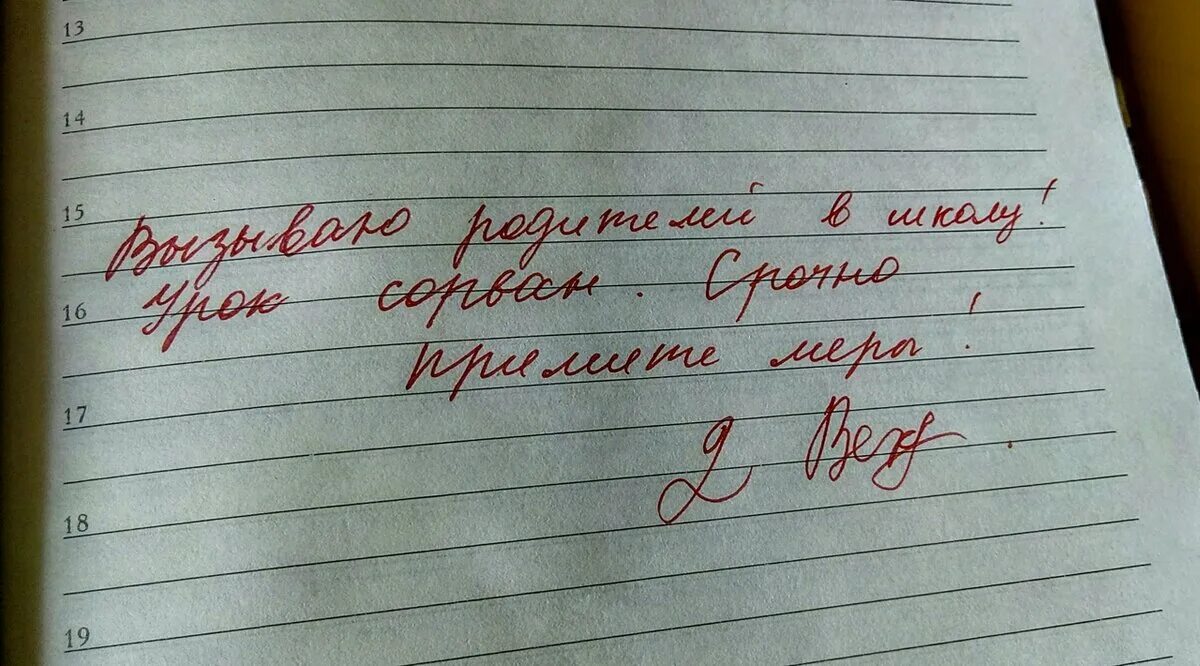 13
14
15
Вызываю родителей в школу!
16
Урок сорван. Срочно
примите меры!
17
2
18
19